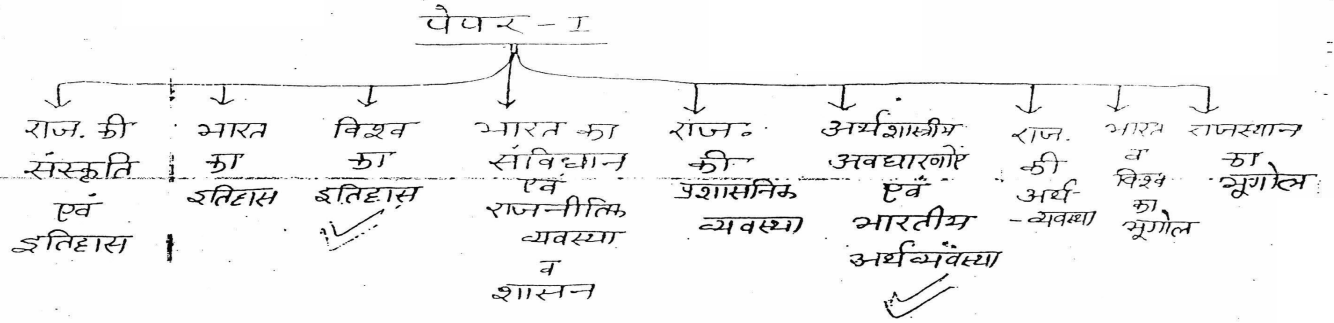 पेपर - I
राज. की
संस्कृति
एवं
इतिहास
भारत
का
इतिहास
विश्व
का
इतिहास
भारत का
संविधान
एवं
राजनीतिक
व्यवस्था
व
शासन
राज.
की
प्रशासनिक
व्यवस्था
अर्थशास्त्रीय
अवधारणाएं
एवं
भारतीय
अर्थव्यवस्था
राज.
की
अर्थ
-व्यवस्था
भारत
व
विश्व
का
भूगोल
राजस्थान
का
भूगोल